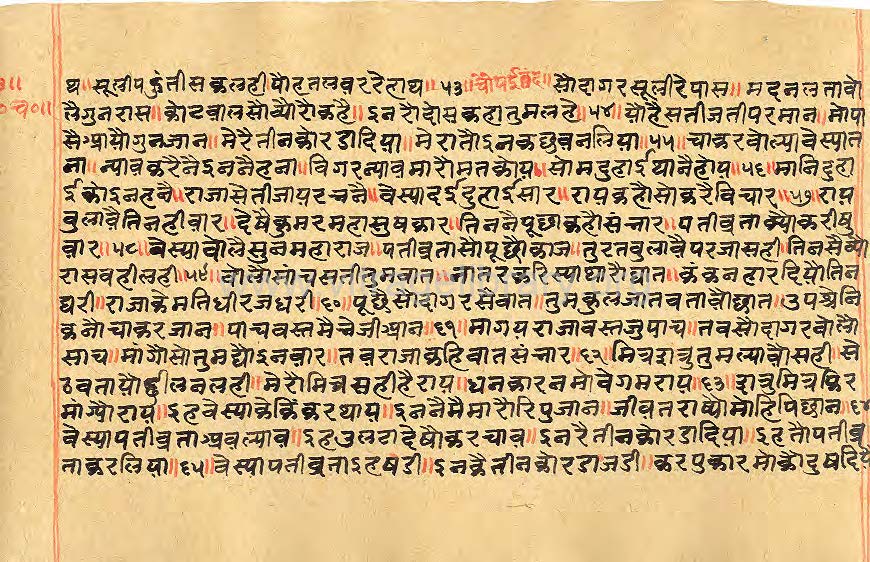 थ॥सूलीपहुंतीसकलही॥यौहतलवररैहाथ॥५३॥चौपईछंद॥सौदागरसूलीरैपास॥मदनलतावो
लैगुनरास॥कोटवालसोंयौंरौकहै॥इनरौदोसकहातुमलहे॥५४॥यौहैसतीजतीपरमान॥मोपा
सैआयौगुनजान॥मेरैतीनकोरडादिया॥मेरातौइनकछुवनलिया॥५५॥चाकरवोल्यावेस्यात
ना॥न्यावकरैनैइननैहना॥विगरन्यावमारौमतकोय॥सोमदुहाईथानैहोय॥५६॥मानिदुहा
ईकोइनहनै॥राजासेतीजायरचनै॥वैस्यादईदुहाईसार॥रायकहौसोकरैविचार॥५७॥राय
वुलावैतिनहीवार॥देषैकुमरमहासुषकार॥तिननैपूछाकहौसंचार॥पतीवृताक्यौंकरीषु
वार॥५८॥वैस्यावोलैसुनमहाराज॥पतीवृतासोपूछौकाज॥तुरतवुलावैपरजासही॥तिनसैव्यौ
रासवहीलही॥५९॥
द्यरी॥राजाकेमतिधीरजधरी॥६०॥पूछैसोदागरसैवात॥तुमकुलजातवतावौछात॥उपश्चेनि
कनोचाकरजान॥पाचवस्तमैंचेजीआन॥६१॥मागयराजावस्तजुपाच॥तवसौदागरवोलौ
साच॥मांगौसोतुमद्यौइनवार॥तवराजाकहिवातसंचार॥६२॥मित्रशत्रुतुमल्यावौसही॥से
ठवतायौढीलनलही॥मेरौमित्रसहीहैराय॥धनकारनमोवेगमराय॥६३॥शत्रुमित्रफिर
मांग्यौराय॥इहवैस्याकैकिंकरथाय॥इननैमैमारौरिपुजान॥जीवतराष्यौमोहिपिछान॥६४
वैस्यापतीवृताअवल्याव॥इहउलटादेषौकरचाव॥इनरैतीनकोरडादिया॥इहतौपतीवृ
ताकरलिया॥६५॥वैस्यापतीवृताइहषडी॥इनकैतीनकोरडाजडी॥करपुकारमोकौदुषदियै